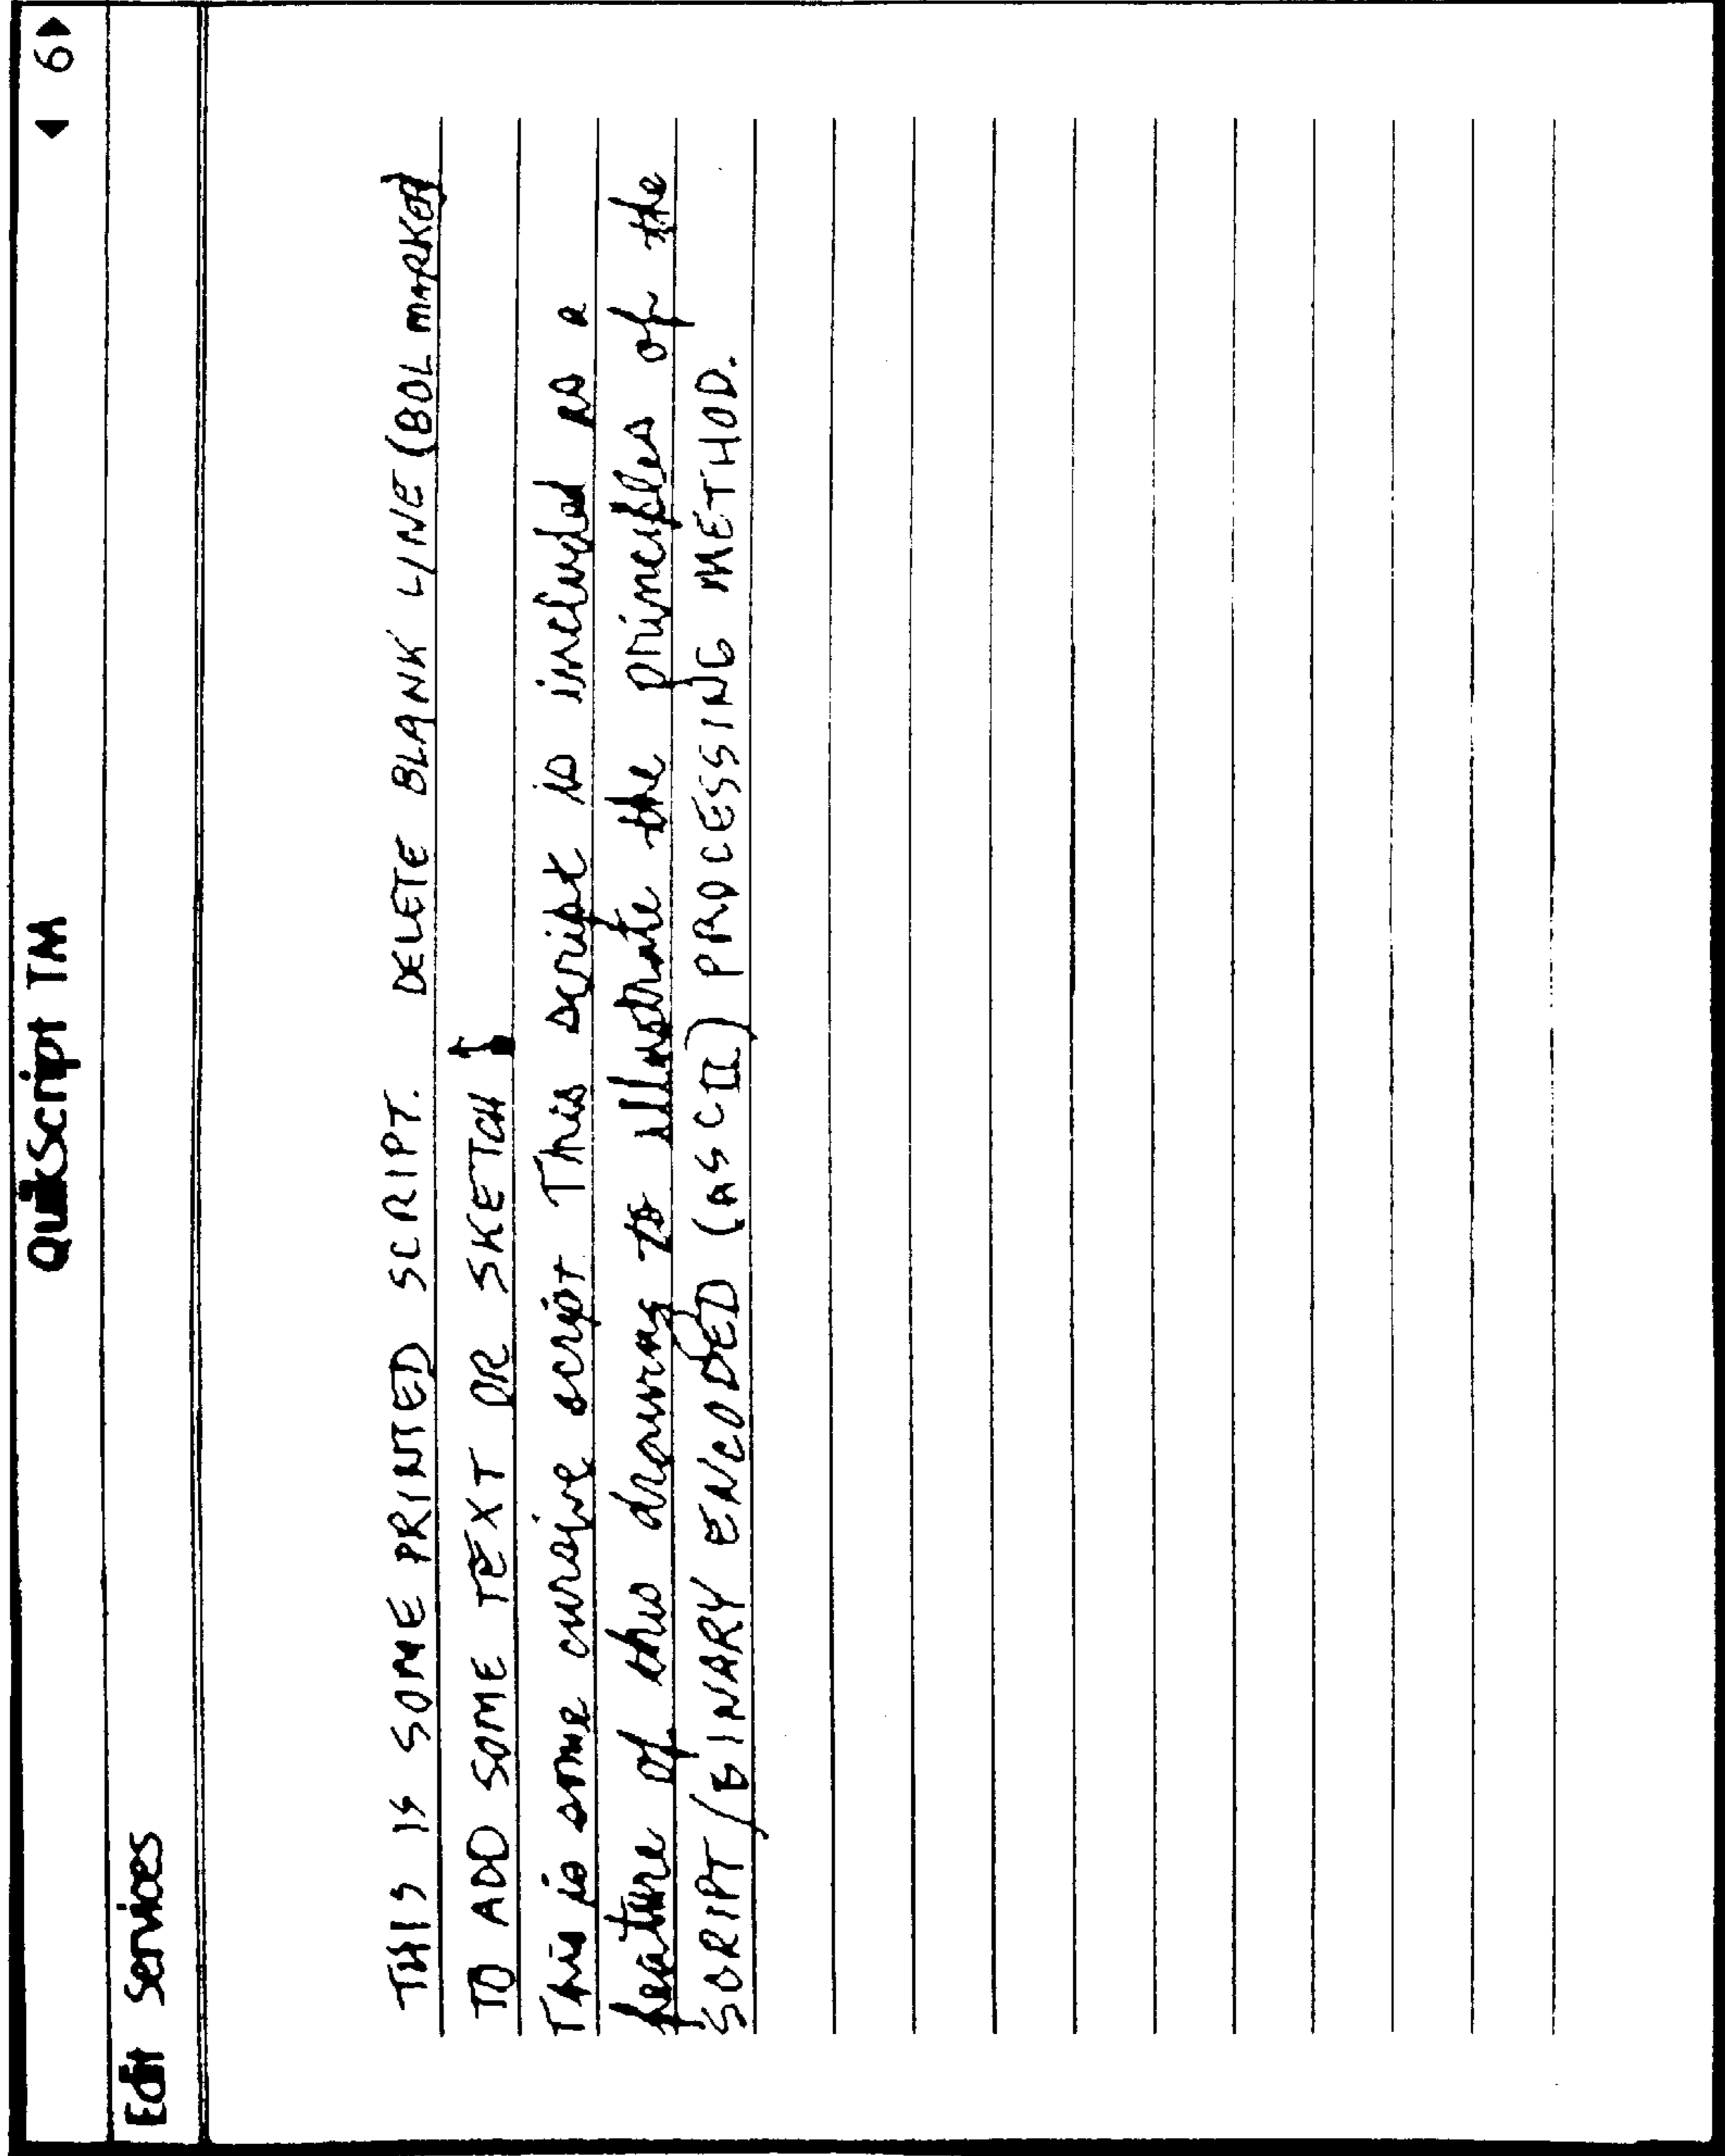 QuikScript TM
◀ 6▶
Edit Services
THIS IS SOME PRINTED SCRIPT. DELETE BLANK LINE (BOL MARKED)
TO ADD SOME TEXT OR SKETCH
This is some cursive script This script is included as a
feature of this drawing to illustrate the principles of the
SCRIPT/BINARY ENCODED (ASCII) PROCESSING METHOD.